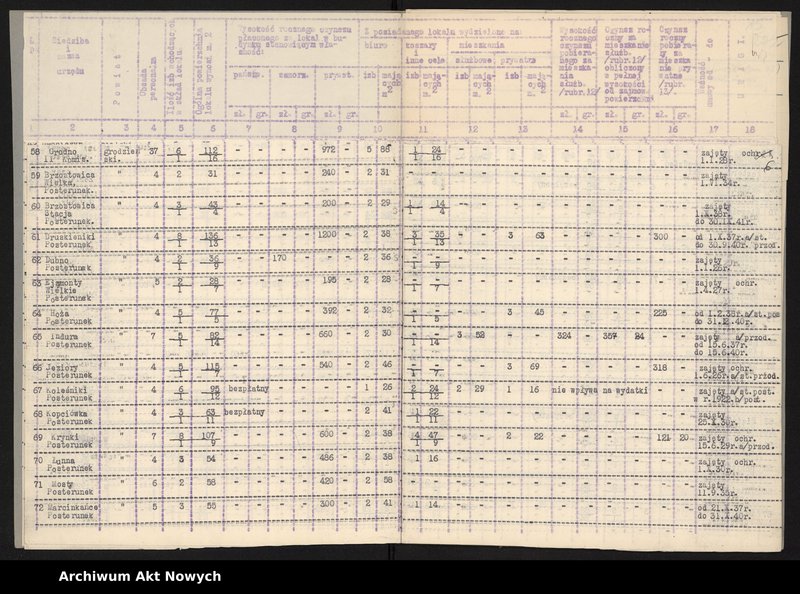 Siedziba i nazwa urzędu
Powiat
Obsada personalna
Ilość izb wchodząc. w skład lokalu
Ogólna powierzchnia lokalu wynosi m. 2
Wysokość rocznego czynszu płaconego za lokal w budynku stanowiącym własność:
państw. samorz. prywat.
zł. gr. zł. gr. zł. gr.
Z posiadanego lokalu wydzielono na:
biuro koszary i inne cele mieszkania
służbowe prywatne
izb mających m. 2
Wysokość rocznego czynszu pobieranego za mieszkania służb. /rubr.12/
Czynsz roczny za mieszkanie służb. /rubr.12/ obliczony w pełnej wysokości od zajmow. powierzchni
Czynsz roczny pobierany za mieszkania prywatne /rubr. 13/.
zł. gr. zł. gr. zł. gr.
U W A G I.
1 2 3 4 5 6 7 8 9 10 11 12 13 14 15 16 17 18
58 Grodno II Komis. grodzieński. 37 6/1 112/16 - - - - 972 - 5 86 1/1 24/16 - - - - - - - - - - zajęty ochr. 1.1.28r.
59 Brzostowica Wielka, Posterunek. " 4 2 31 - - - - 240 - 2 31 - - - - - - - - - - - - zajęty 1.VI.34r.
60 Brzostowica Stacja Posterunek. " 4 3/1 43/4 - - - - 200 - 2 29 1/1 14/4 - - - - - - - - - - zajęty 1.X.38r. do 30.IX.41r.
61 Druskieniki Posterunek. " 4 8/1 136/13 - - - - 1200 - 2 38 3/1 35/13 - - 3 63 - - - - 300 - od 1.X.37r.a/st. do 30.9.40r. przod.
62 Dubno Posterunek " 4 2/1 36/9 - - 170 - - - 2 36 -/1 -/9 - - - - - - - - - - zajęty 1.1.26r.
63 Ejsmonty Wielkie Posterunek " 5 2/1 28/7 - - - - 195 - 2 28 -/1 -/7 - - - - - - - - - - zajęty ochr. 1.4.27r.
64 Hoża Posterunek " 4 5/1 77/5 - - - - 392 - 2 32 -/1 -/5 - - 3 45 - - - - 225 - od 1.2.38r.a/st.pos do 31.12.40r.
65 Indura Posterunek " 7 5/1 82/14 - - - - 660 - 2 30 -/1 -/14 3 52 - - 324 - 357 24 - - zajęty a/przod. od 15.6.37r. do 15.6.40r.
66 Jeziory Posterunek " 4 5/1 115/7 - - - - 540 - 2 46 -/1 -/7 - - 3 69 - - - - 318 - zajęty ochr. 1.6.28r.a/st.przod.
67 Koleśniki Posterunek " 4 6/1 95/12 bezpłatny - - - - - 1 26 2/1 24/12 2 29 1 16 nie wpływa na wydatki - - zajęty a/st.post. w r.1922.b/post.
68 Kopciówka Posterunek " 4 3/1 63/11 bezpłatny - - - - - 2 41 1/1 22/11 - - - - - - - - - - zajęty 25.X.36r.
69 Krynki Posterunek " 7 8/1 107/9 - - - - 600 - 2 38 4/1 47/9 - - 2 22 - - - - 121 20 zajęty ochr. 15.6.29r.a/przod.
70 Łunna Posterunek " 4 3 54 - - - - 486 - 2 38 1 16 - - - - - - - - - - zajęty ochr. 1.X.30r.
71 Mosty Posterunek " 6 2 58 - - - - 420 - 2 58 - - - - - - - - - - - - zajęty 11.9.35r.
72 Marcinkańce Posterunek " 5 3 55 - - - - 300 - 2 41 1 14 - - - - - - - - - - od 21.X.37r. do 31.X.40r.
Archiwum Akt Nowych